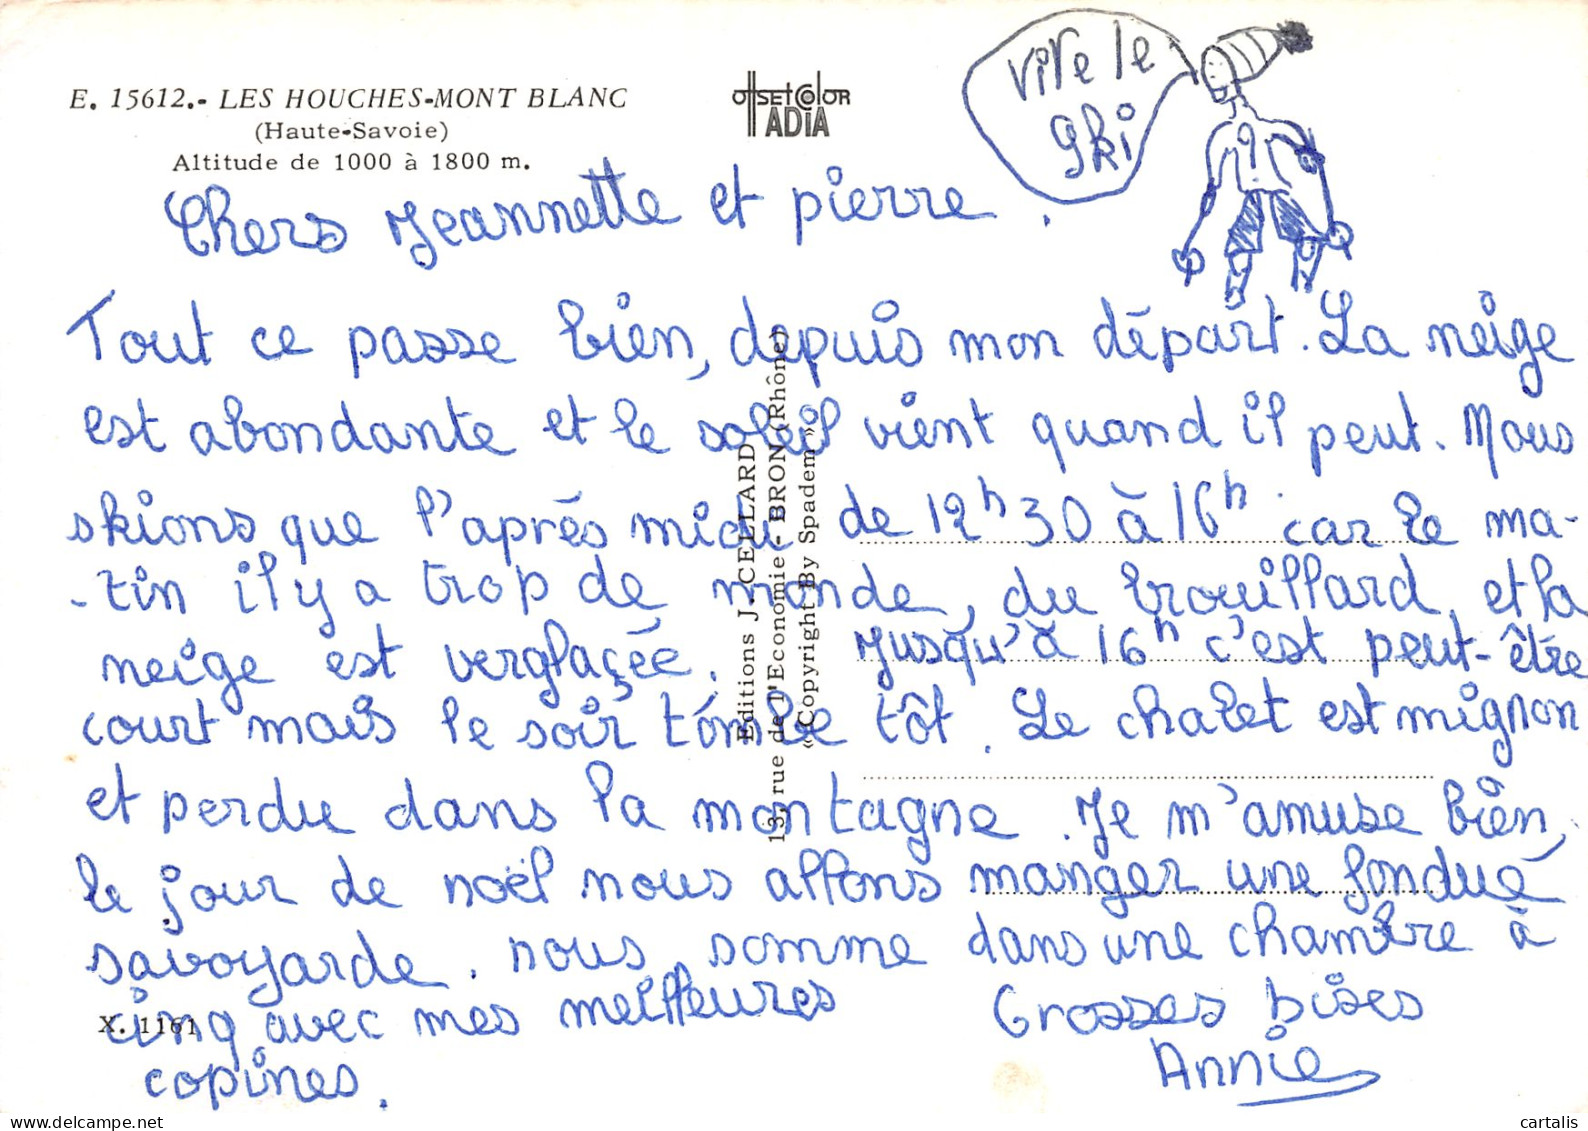 E. 15612.- LES HOUCHES-MONT BLANC
(Haute-Savoie)
Altitude de 1000 à 1800 m.
offset color
ADIA
vive le
ski
Chers Jeannette et pierre.
Tout ce passe bien, depuis mon départ. La neige
est abondante et le soleil vient quand il peut. Nous
skions que l'après midi de 12h30 à 16h car le ma-
-tin il y a trop de monde, du brouillard, et la
neige est verglaçée. Jusqu'à 16h c'est peut-être
court mais le soir tombe tôt. Le chalet est mignon
et perdu dans la montagne. Je m'amuse bien,
le jour de noël nous allons manger une fondue
savoyarde. nous somme dans une chambre à
cinq avec mes meilleures
copines.
Grosses bises
Annie
X. 1161
Editions J. CELLARD
13, rue de l'Economie - BRON (Rhône)
«Copyright By Spadem»
delcampe.net
cartalis